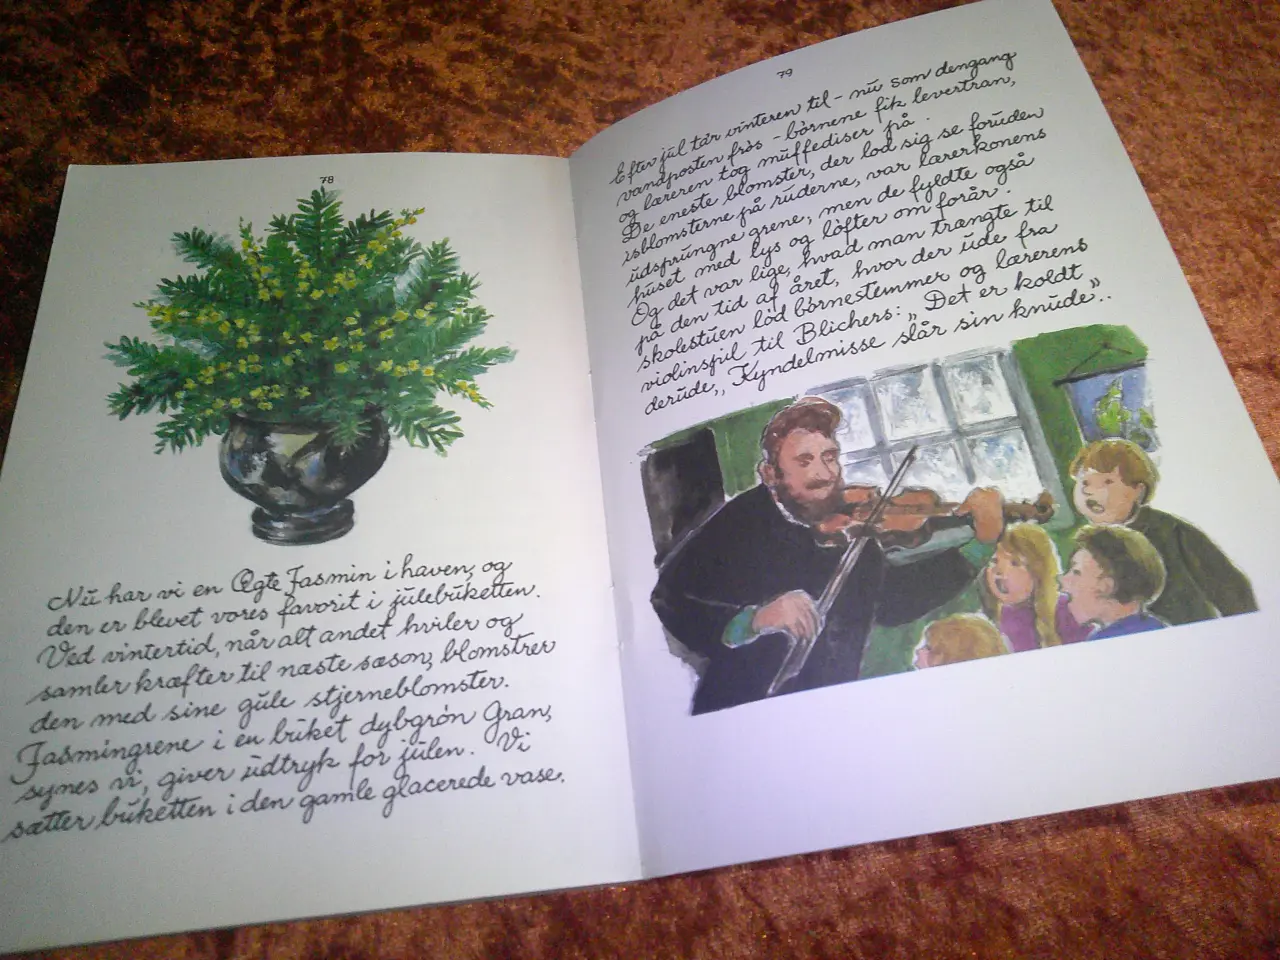 78
Nu har vi en Ægte Jasmin i haven, og
den er blevet vores favorit i julebuketten.
Ved vintertid, når alt andet hviler og
samler kræfter til næste sæson, blomstrer
den med sine gule stjerneblomster.
Jasmingrene i en buket dybgrøn Gran,
synes vi, giver udtryk for julen. Vi
sætter buketten i den gamle glacerede vase.
79
Efter jul tar vinteren til - nu som dengang
vandposten frøs - børnene fik levertran,
og læreren tog muffediser på.
De eneste blomster, der lod sig se foruden
isblomsterne på ruderne, var lærerkonens
udsprungne grene, men de fyldte også
huset med lys og løfter om forår.
Og det var lige, hvad man trængte til
på den tid af året, hvor der ude fra
skolestuen lød børnestemmer og lærerens
violinspil til Blichers: „Det er koldt
derude„ Kyndelmisse slår sin knude„..